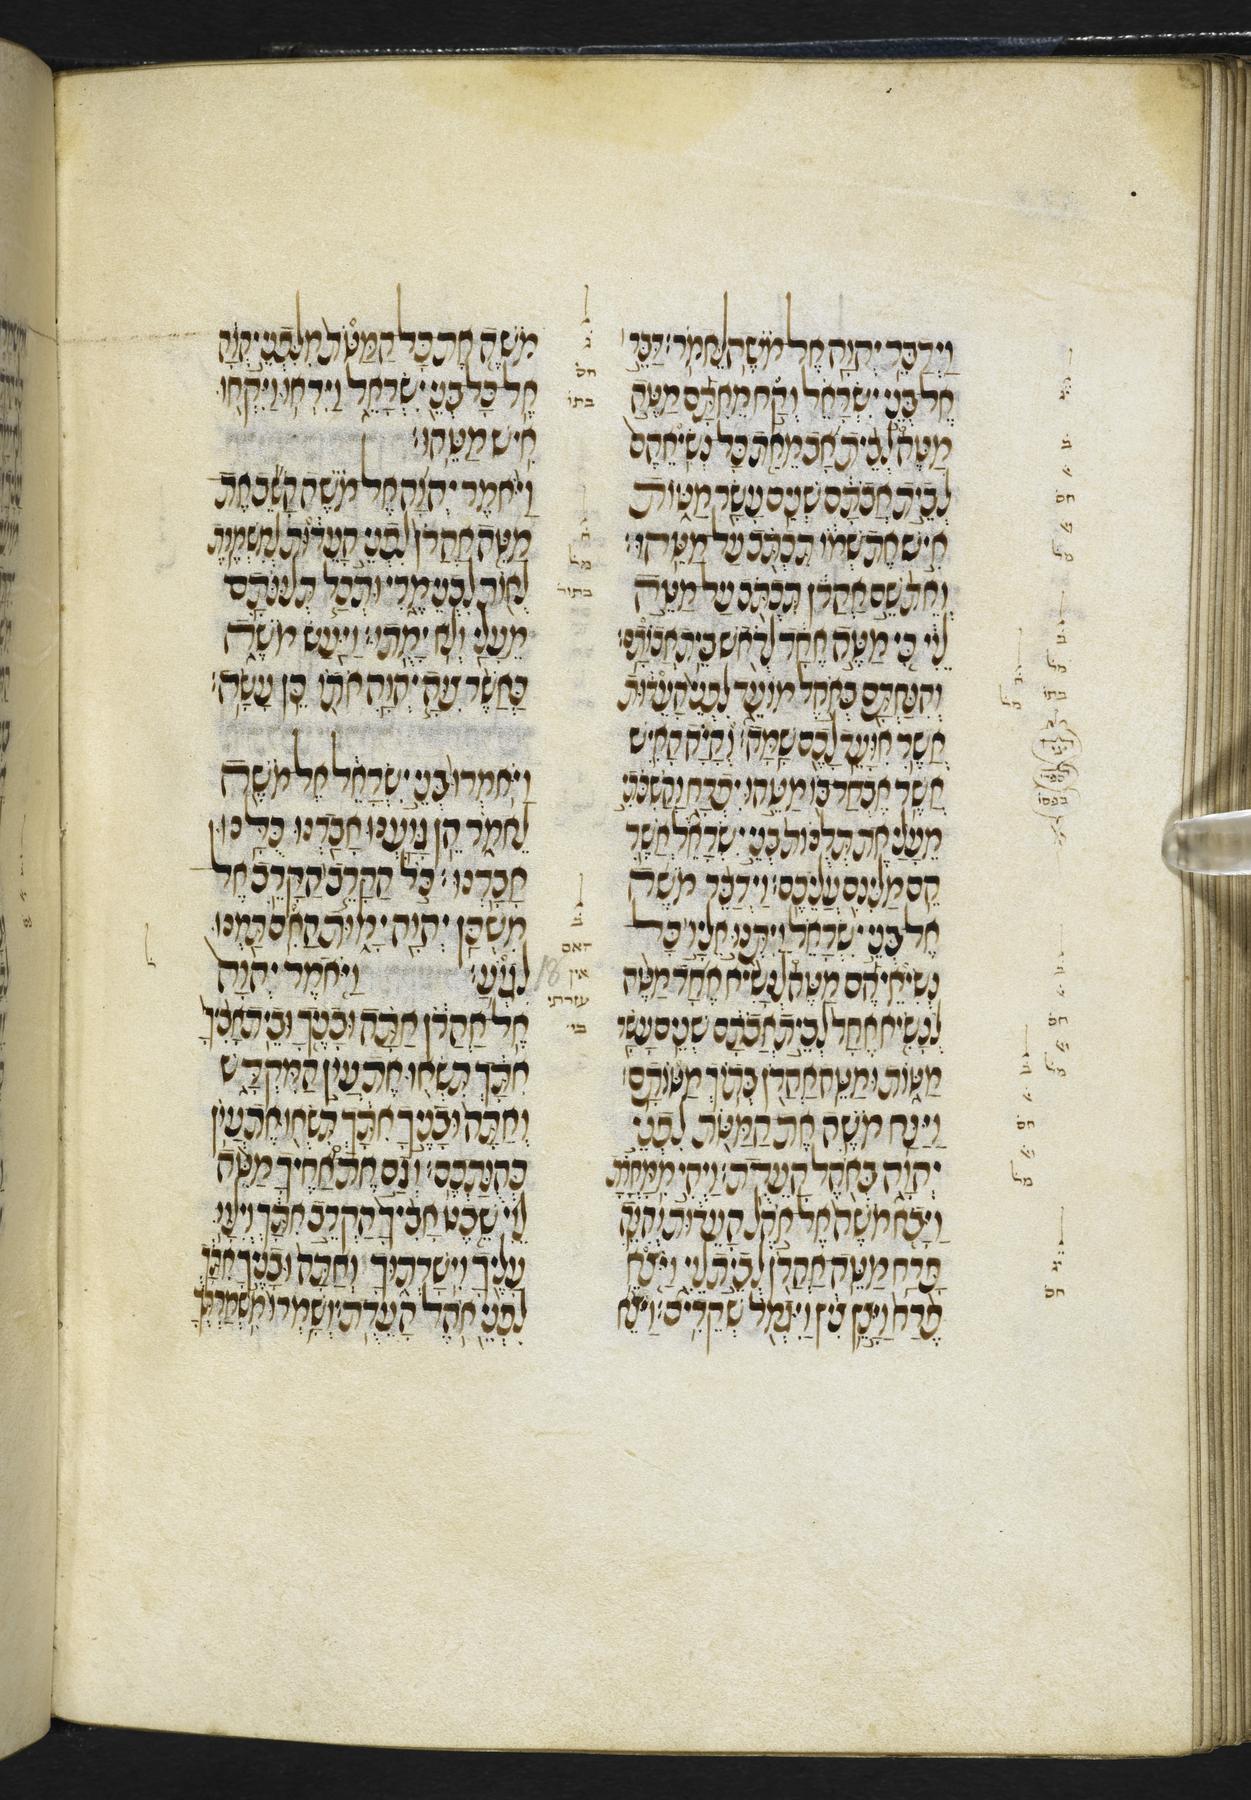 וַיְדַבֵּר יְהוָה אֶל מֹשֶׁה לֵּאמֹר׃ דַּבֵּר
אֶל בְּנֵי יִשְׂרָאֵל וְקַח מֵאִתָּם מַטֶּה
מַטֶּה לְבֵית אָב מֵאֵת כָּל נְשִׂיאֵהֶם
לְבֵית אֲבֹתָם שְׁנֵים עָשָׂר מַטּוֹת
אִישׁ אֶת שְׁמוֹ תִּכְתֹּב עַל מַטֵּהוּ׃
וְאֵת שֵׁם אַהֲרֹן תִּכְתֹּב עַל מַטֵּה
לֵוִי כִּי מַטֶּה אֶחָד לְרֹאשׁ בֵּית אֲבוֹתָם׃
וְהִנַּחְתָּם בְּאֹהֶל מוֹעֵד לִפְנֵי הָעֵדוּת
אֲשֶׁר אִוָּעֵד לָכֶם שָׁמָּה׃ וְהָיָה הָאִישׁ
אֲשֶׁר אֶבְחַר בּוֹ מַטֵּהוּ יִפְרָח וַהֲשִׁכֹּתִי
מֵעָלַי אֶת תְּלֻנּוֹת בְּנֵי יִשְׂרָאֵל אֲשֶׁר
הֵם מַלִּינִם עֲלֵיכֶם׃ וַיְדַבֵּר מֹשֶׁה
אֶל בְּנֵי יִשְׂרָאֵל וַיִּתְּנוּ אֵלָיו כָּל
נְשִׂיאֵיהֶם מַטֶּה לְנָשִׂיא אֶחָד מַטֶּה
לְנָשִׂיא אֶחָד לְבֵית אֲבֹתָם שְׁנֵים עָשָׂר
מַטּוֹת וּמַטֵּה אַהֲרֹן בְּתוֹךְ מַטּוֹתָם׃
וַיַּנַּח מֹשֶׁה אֶת הַמַּטֹּת לִפְנֵי
יְהוָה בְּאֹהֶל הָעֵדֻת׃ וַיְהִי מִמָּחֳרָת
וַיָּבֹא מֹשֶׁה אֶל אֹהֶל הָעֵדוּת וְהִנֵּה
פָּרַח מַטֵּה אַהֲרֹן לְבֵית לֵוִי וַיֹּצֵא
פֶרַח וַיָּצֵץ צִיץ וַיִּגְמֹל שְׁקֵדִים׃ וַיֹּצֵא
מֹשֶׁה אֶת כָּל הַמַּטֹּת מִלִּפְנֵי יְהוָה
אֶל כָּל בְּנֵי יִשְׂרָאֵל וַיִּרְאוּ וַיִּקְחוּ
אִישׁ מַטֵּהוּ׃
וַיֹּאמֶר יְהוָה אֶל מֹשֶׁה הָשֵׁב אֶת
מַטֵּה אַהֲרֹן לִפְנֵי הָעֵדוּת לְמִשְׁמֶרֶת
לְאוֹת לִבְנֵי מֶרִי וּתְכַל תְּלוּנֹּתָם
מֵעָלַי וְלֹא יָמֻתוּ׃ וַיַּעַשׂ מֹשֶׁה
כַּאֲשֶׁר צִוָּה יְהוָה אֹתוֹ כֵּן עָשָׂה׃
וַיֹּאמְרוּ בְּנֵי יִשְׂרָאֵל אֶל מֹשֶׁה
לֵאמֹר הֵן גָּוַעְנוּ אָבַדְנוּ כֻּלָּנוּ
אָבָדְנוּ׃ כֹּל הַקָּרֵב הַקָּרֵב אֶל
מִשְׁכַּן יְהוָה יָמוּת הַאִם תַּמְנוּ
לִגְוֹעַ׃ וַיֹּאמֶר יְהוָה
אֶל אַהֲרֹן אַתָּה וּבָנֶיךָ וּבֵית אָבִיךָ
אִתָּךְ תִּשְׂאוּ אֶת עֲוֹן הַמִּקְדָּשׁ
וְאַתָּה וּבָנֶיךָ אִתָּךְ תִּשְׂאוּ אֶת עֲוֹן
כְּהֻנַּתְכֶם׃ וְגַם אֶת אַחֶיךָ מַטֵּה
לֵוִי שֵׁבֶט אָבִיךָ הַקְרֵב אִתָּךְ וְיִלָּווּ
עָלֶיךָ וִישָׁרְתוּךָ וְאַתָּה וּבָנֶיךָ אִתָּךְ
לִפְנֵי אֹהֶל הָעֵדֻת׃ וְשָׁמְרוּ מִשְׁמַרְתְּךָ
18